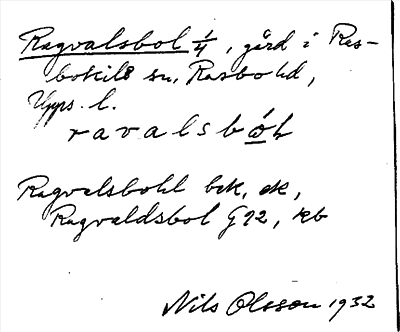 Ragvalsbol 1/4, gård i Ras-
bokils sn, Rasbo hd,
Upps. l.
ravalsbóḷ
Ragvalsbohl bek, ek,
Ragvaldsbol G92, kb
Nils Olsson 1932